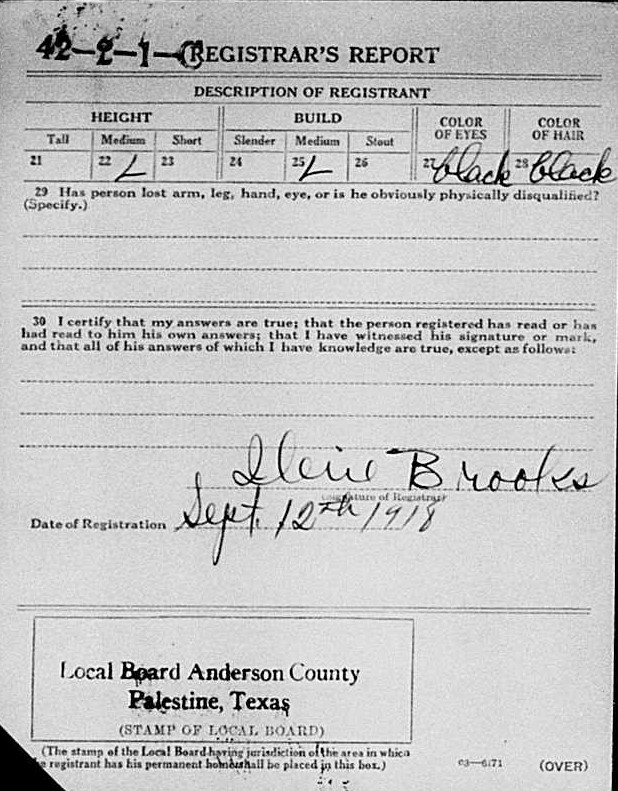 42-2-1-C REGISTRAR'S REPORT
DESCRIPTION OF REGISTRANT
HEIGHT BUILD COLOR OF EYES COLOR OF HAIR
Tall Medium Short Slender Medium Stout
21 22 23 24 25 26 27 black 28 black
29 Has person lost arm, leg, hand, eye, or is he obviously physically disqualified?
(Specify.)
30 I certify that my answers are true; that the person registered has read or has
had read to him his own answers; that I have witnessed his signature or mark,
and that all of his answers of which I have knowledge are true, except as follows:
Brooks
(Signature of Registrar)
Date of Registration Sept. 12th 1918
Local Board Anderson County
Palestine, Texas
(STAMP OF LOCAL BOARD)
(The stamp of the Local Board having jurisdiction of the area in which
registrant has his permanent home shall be placed in this box.)
03—6171 (OVER)